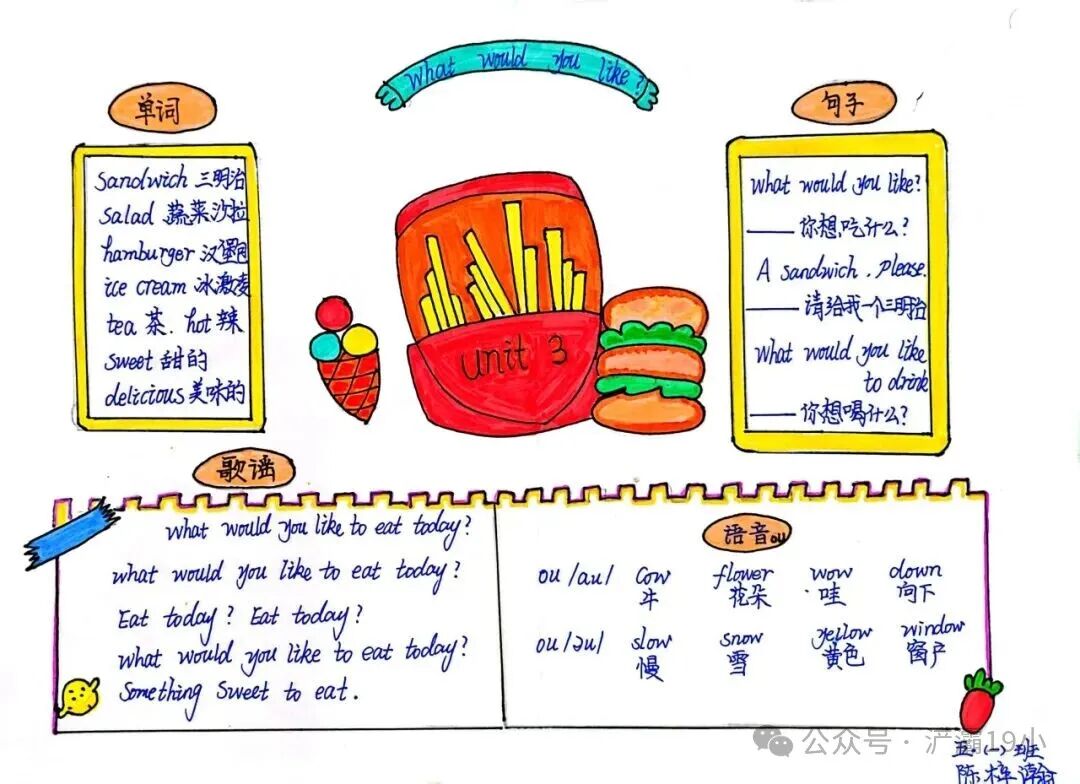 What would you like?
单词
Sandwich 三明治
Salad 蔬菜沙拉
hamburger 汉堡包
ice cream 冰激凌
tea 茶. hot 辣
sweet 甜的
delicious 美味的
句子
What would you like?
——你想吃什么?
A sandwich, Please.
——请给我一个三明治
What would you like
to drink
——你想喝什么?
unit 3
歌谣
What would you like to eat today?
What would you like to eat today?
Eat today? Eat today?
What would you like to eat today?
Something Sweet to eat.
语音ou
ou /au/ Cow flower wow down
牛 花朵 哇 向下
ou /əu/ slow snow yellow window
慢 雪 黄色 窗户
公众号·浐灞19小
五(一)班
陈梓瀚